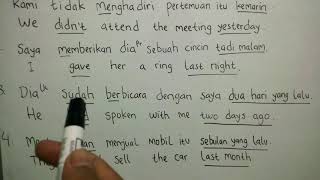 Kami tidak Menghadiri Pertemuan itu kemarin
We didn't attend the meeting yesterday.
Saya memberikan dia Pr sebuah cincin tadi malam.
I gave her a ring last night.
Dia Lk Sudah berbicara dengan saya dua hari yang lalu.
He spoken with me two days ago.
4. menjual mobil itu sebulan yang lalu.
sell the car last month